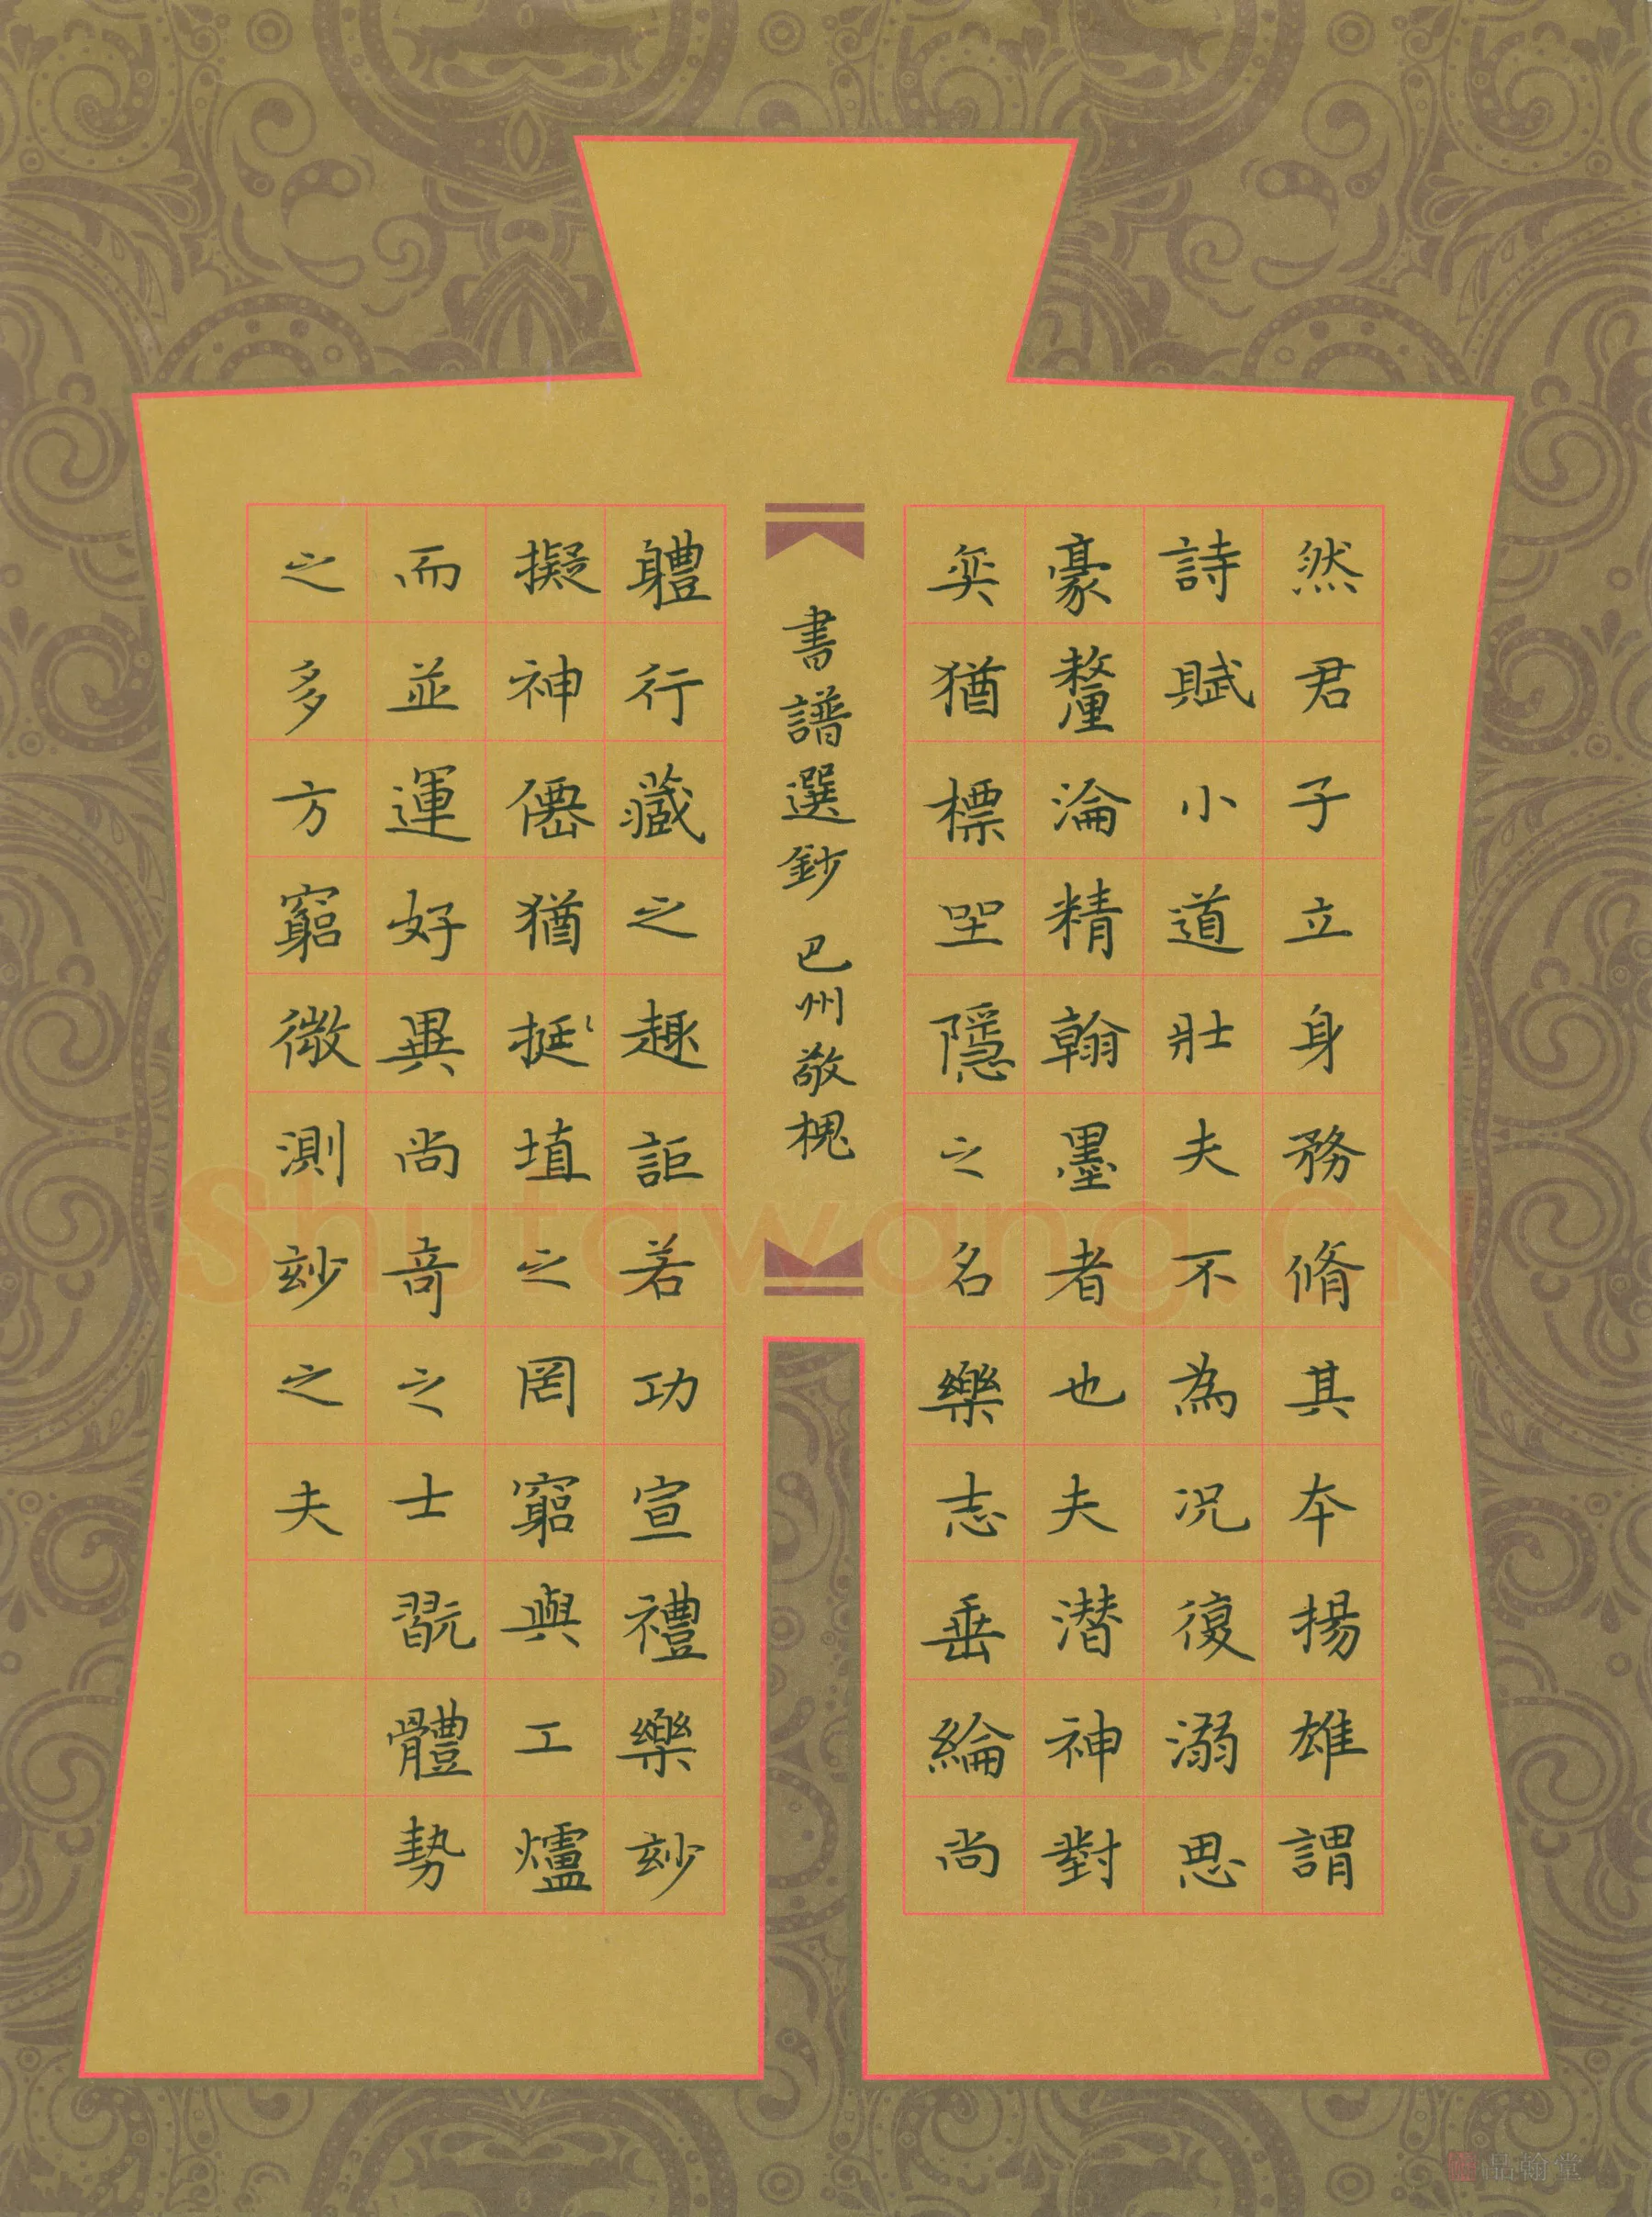 然君子立身務脩其本揚雄謂
詩賦小道壯夫不為況復溺思
豪釐淪精翰墨者也夫潛神對
奕猶標坐隱之名樂志垂綸尚
書譜選鈔 巴州敬槐
軆行藏之趣詎若功宣禮樂玅
擬神僊猶挻埴之罔窮與工爐
而並運好異尚奇之士翫體勢
之多方窮微測玅之夫
Shufawang.CN
品翰堂